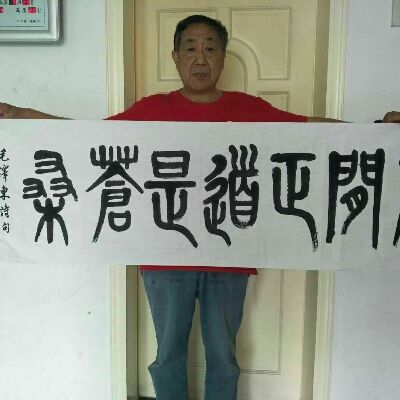 間正道是蒼桑
毛澤東詩句